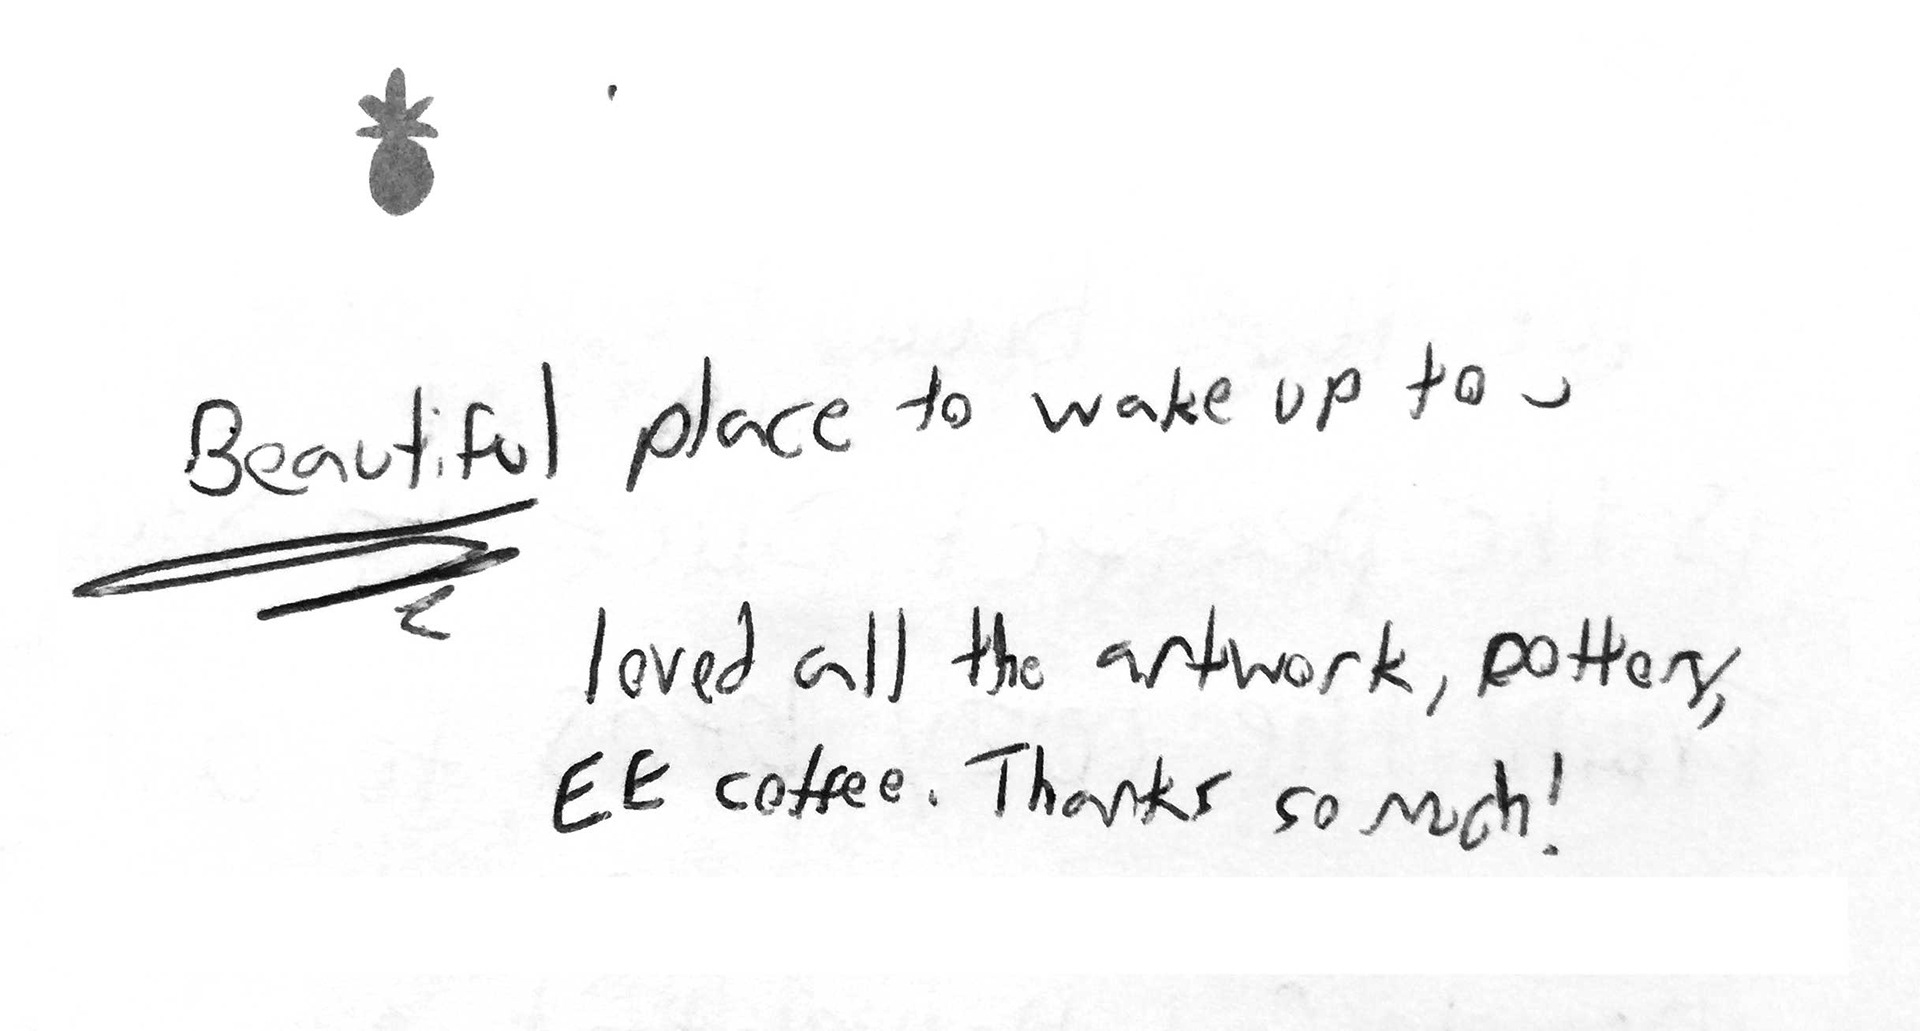 Beautiful place to wake up to
loved all the artwork, pottery,
EE coffee. Thanks so much!